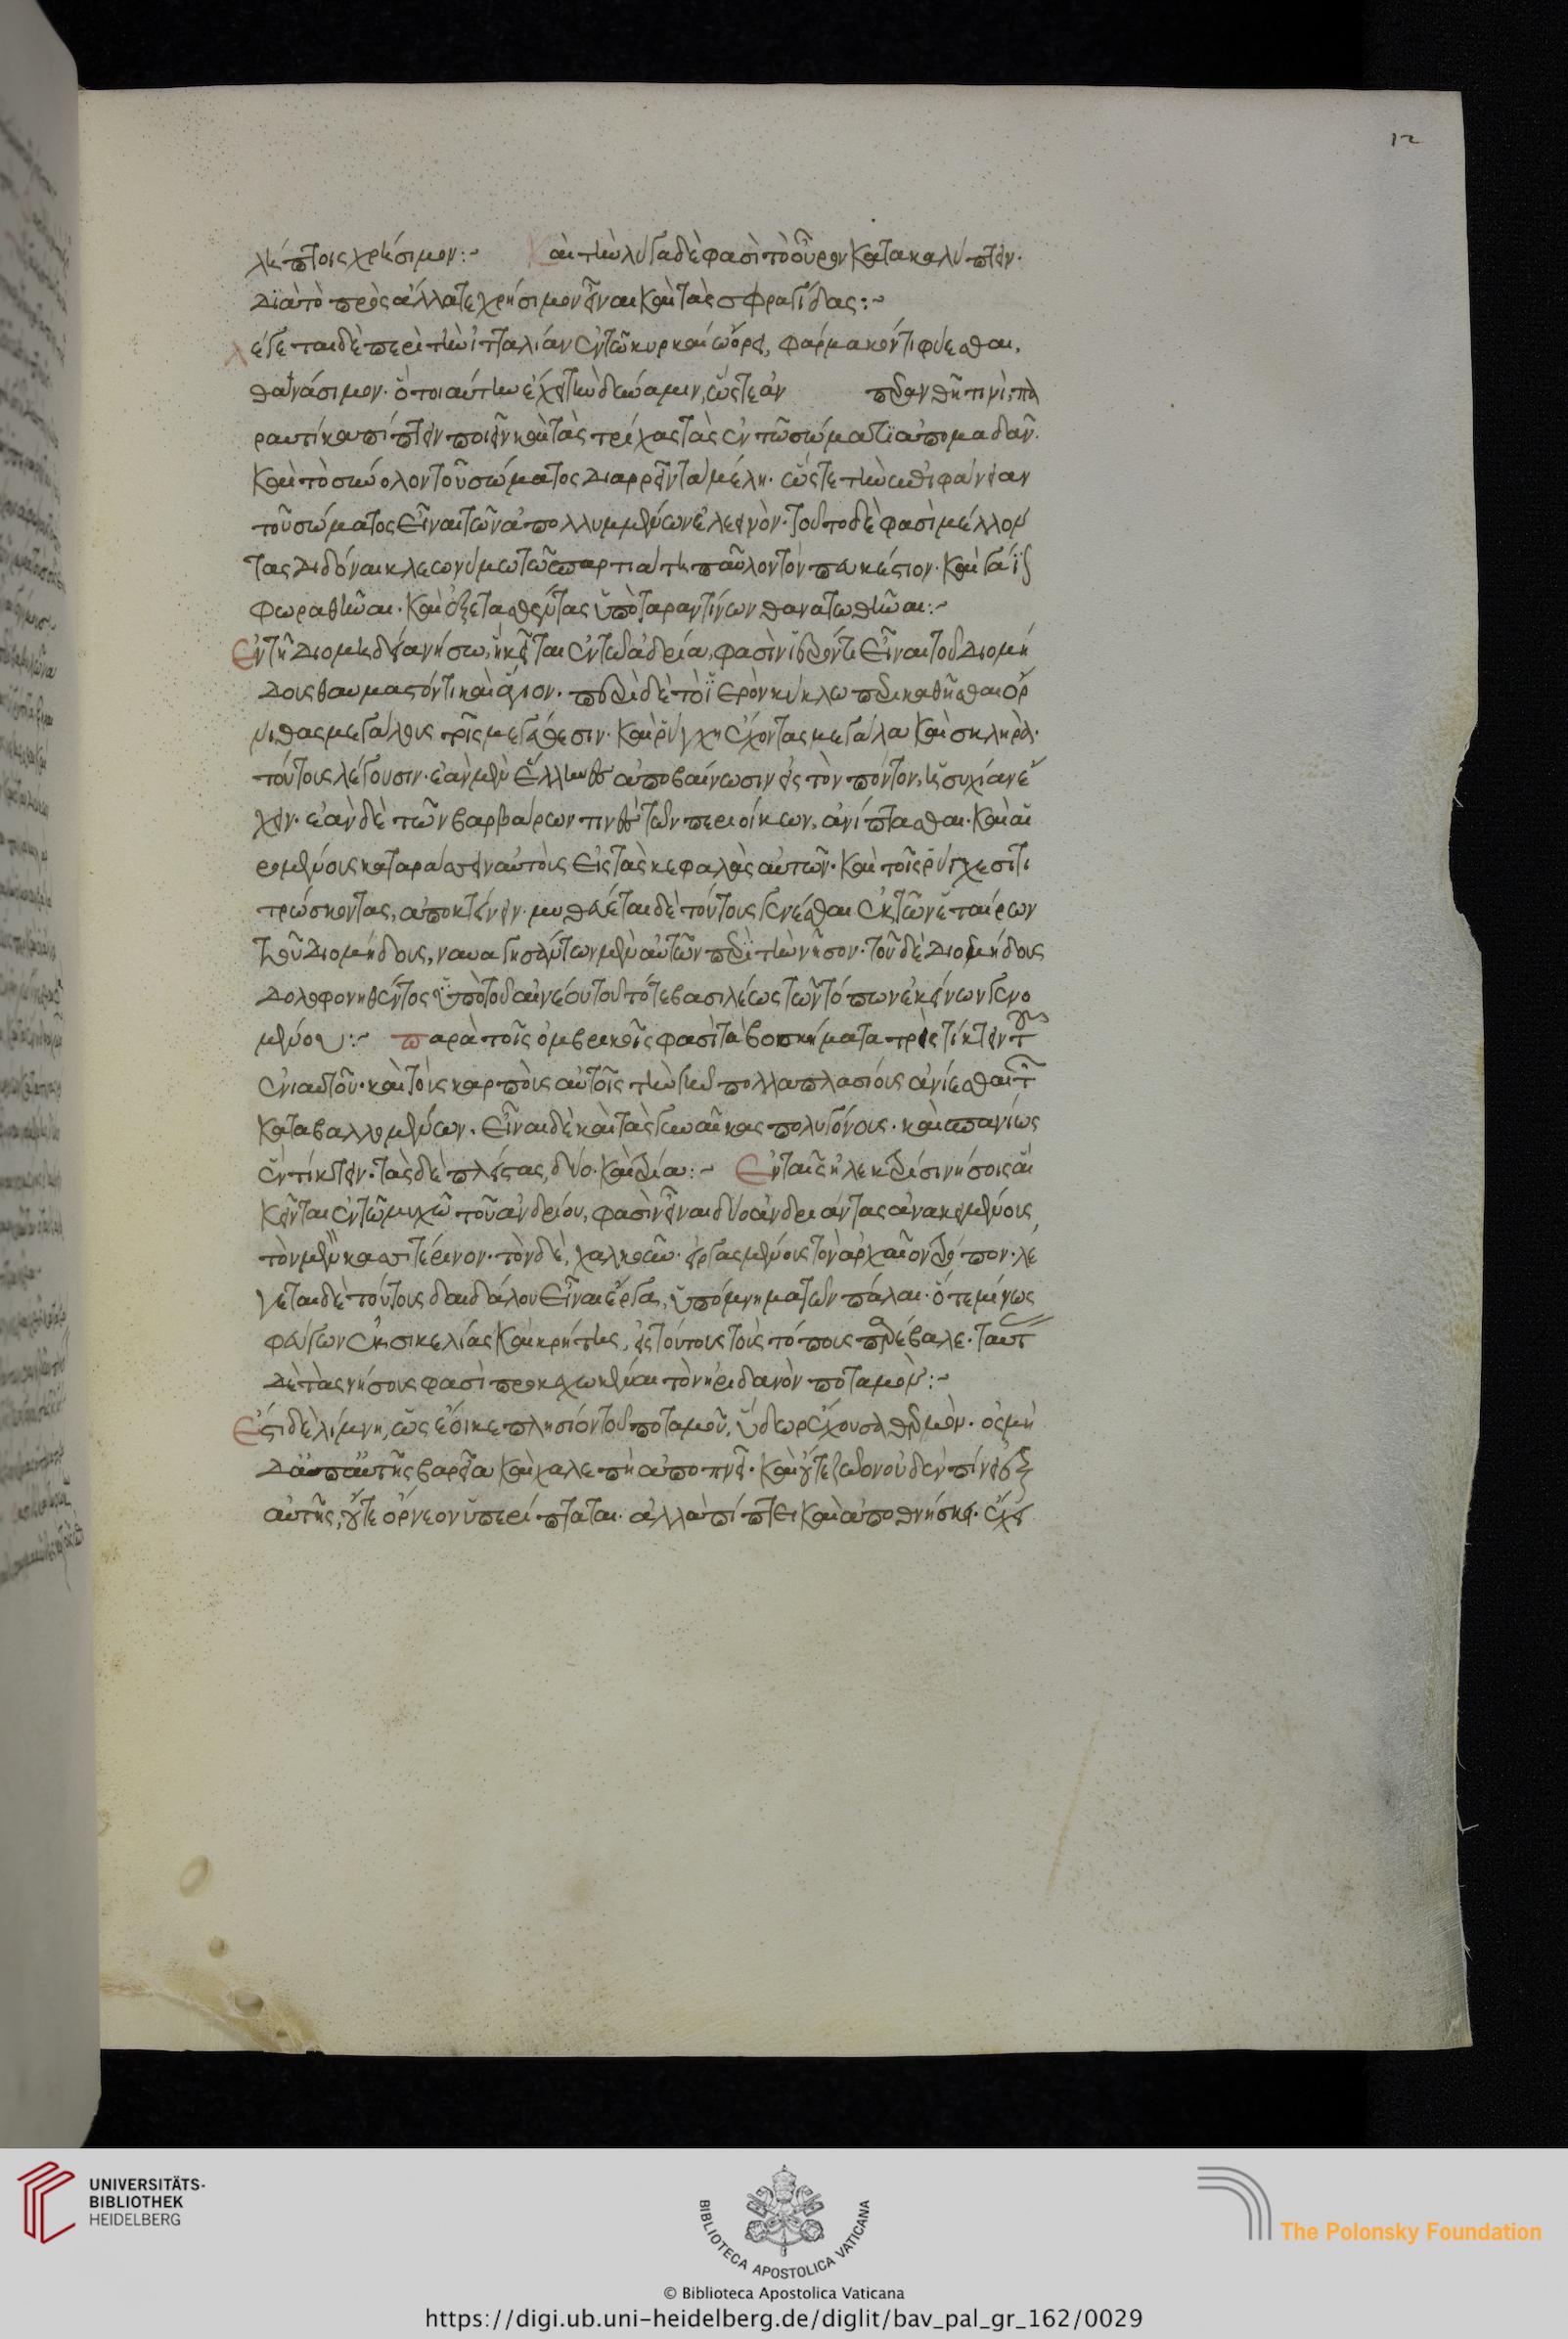 12
λύπτοις χρήσιμον:~ Καὶ τὴν λύγγα δὲ φασὶ τὸ οὖρον κατακαλύπτειν·
διὰ τὸ πρὸς ἄλλα τε χρήσιμον εἶναι καὶ τὰς σφραγίδας:~
Λέγεται δὲ περὶ τὴν ἰταλίαν ἐν τῶ κυρκαίω ὄρει, φάρμακόν τι φύεσθαι,
θανάσιμον· ὃ τοιαύτην ἔχει τὴν δύναμιν, ὥστε ἂν προσρανθῆ τινὶ, πα
ραυτίκα πίπτειν ποιεῖν καὶ τὰς τρίχας τὰς ἐν τῶ σώματι ἀπομαδᾶν.
καὶ τὸ σύνολον τοῦ σώματος διαρρεῖν τὰ μέλη· ὥστε τὴν ἐπιφάνειαν
τοῦ σώματος εἶναι τῶν ἀπολλυμμένων ἐλεεινόν· τοῦτο δὲ φασὶ μέλλον
τας διδόναι κλεωνύμω τῶ σπαρτιάτη παῦλον τὸν πευκέστιον· καὶ γάϊον
φωραθῆναι· καὶ ἐξετασθέντας ὑπὸ ταραντίνων θανατωθῆναι:~
Ἐν τῆ διομηδεία νήσω, ἣ κεῖται ἐν τῶ ἀδρία, φασὶν ἱερόν τι εἶναι τοῦ διομή
δους θαυμαστόν τι καὶ ἅγιον· περὶ δὲ τὸ ἱερὸν κύκλω περικαθῆσθαι ὄρ
νιθας μεγάλους τοῖς μεγέθεσιν· καὶ ῥύγχη ἔχοντας μεγάλα καὶ σκληρά·
τούτους λέγουσιν· ἐὰν μὲν ἕλληνες ἀποβαίνωσιν εἰς τὸν πόντον, ἡσυχίαν ἔ
χειν· ἐὰν δὲ τῶν βαρβάρων τινὲς τῶν περιοίκων, ἀνίπτασθαι· καὶ αἰ
ρομένους καταράσσειν αὐτοὺς εἰς τὰς κεφαλὰς αὐτῶν· καὶ τοῖς ῥύγχεσι τι
τρώσκοντας, ἀποκτείνειν· μυθεύεται δὲ τούτους γενέσθαι ἐκ τῶν ἑταίρων
τοῦ διομήδους, ναυαγησάντων μὲν αὐτῶν περὶ τὴν νῆσον· τοῦ δὲ διομήδους
δολοφονηθέντος ὑπὸ τοῦ αἰνέου τοῦ τότε βασιλέως τῶν τόπων ἐκείνων γενο
μένου:~ Παρὰ τοῖς ὀμβρικοῖς φασὶ τὰ βοσκήματα τρὶς τίκτειν τοῦ
ἐνιαυτοῦ· καὶ τοὺς καρποὺς αὐτοῖς τὴν γῆν πολλαπλασίους ἀνίεσθαι τῶν
καταβαλλομένων· εἶναι δὲ καὶ τὰς γυναῖκας πολυγόνους· καὶ σπανίως
ἓν τίκτειν· τὰς δὲ πλείστας, δύο· καὶ τρία:~ Ἐν ταῖς ἠλεκτρίσι νήσοις αἳ
κεῖνται ἐν τῶ μυχῶ τοῦ ἀνδρίου, φασὶν εἶναι δύο ἀνδριάντας ἀνακειμένους
τὸν μὲν κασσιτέρινον· τὸν δὲ, χαλκοῦν· εἰργασμένους τὸν ἀρχαῖον τρόπον· λέ
γεται δὲ τούτους δαιδάλου εἶναι ἔργα, ὑπόμνημα τῶν πάλαι· ὅτε μίνως
φεύγων ἐκ σικελίας καὶ κρήτης, εἰς τούτους τοὺς τόπους παρέβαλε· ταύτας
δὲ τὰς νήσους φασὶ προκεχωκέναι τὸν ἠριδανὸν ποταμόν:~
Ἔστι δὲ λίμνη, ὡς ἔοικε πλησίον τοῦ ποταμοῦ, ὕδωρ ἔχουσα θερμόν· ὀσμὴ
δ' ἀπ' αὐτῆς βαρεῖα καὶ χαλεπὴ ἀποπνεῖ· καὶ οὔτε ζῶον οὐδὲν πίνει ἐξ
αὐτῆς, οὔτε ὄρνεον ὑπερίπταται· ἀλλὰ πίπτει καὶ ἀποθνήσκει· ἔχει
UNIVERSITÄTS-
BIBLIOTHEK
HEIDELBERG
BIBLIOTECA APOSTOLICA VATICANA
The Polonsky Foundation
© Biblioteca Apostolica Vaticana
https://digi.ub.uni-heidelberg.de/diglit/bav_pal_gr_162/0029